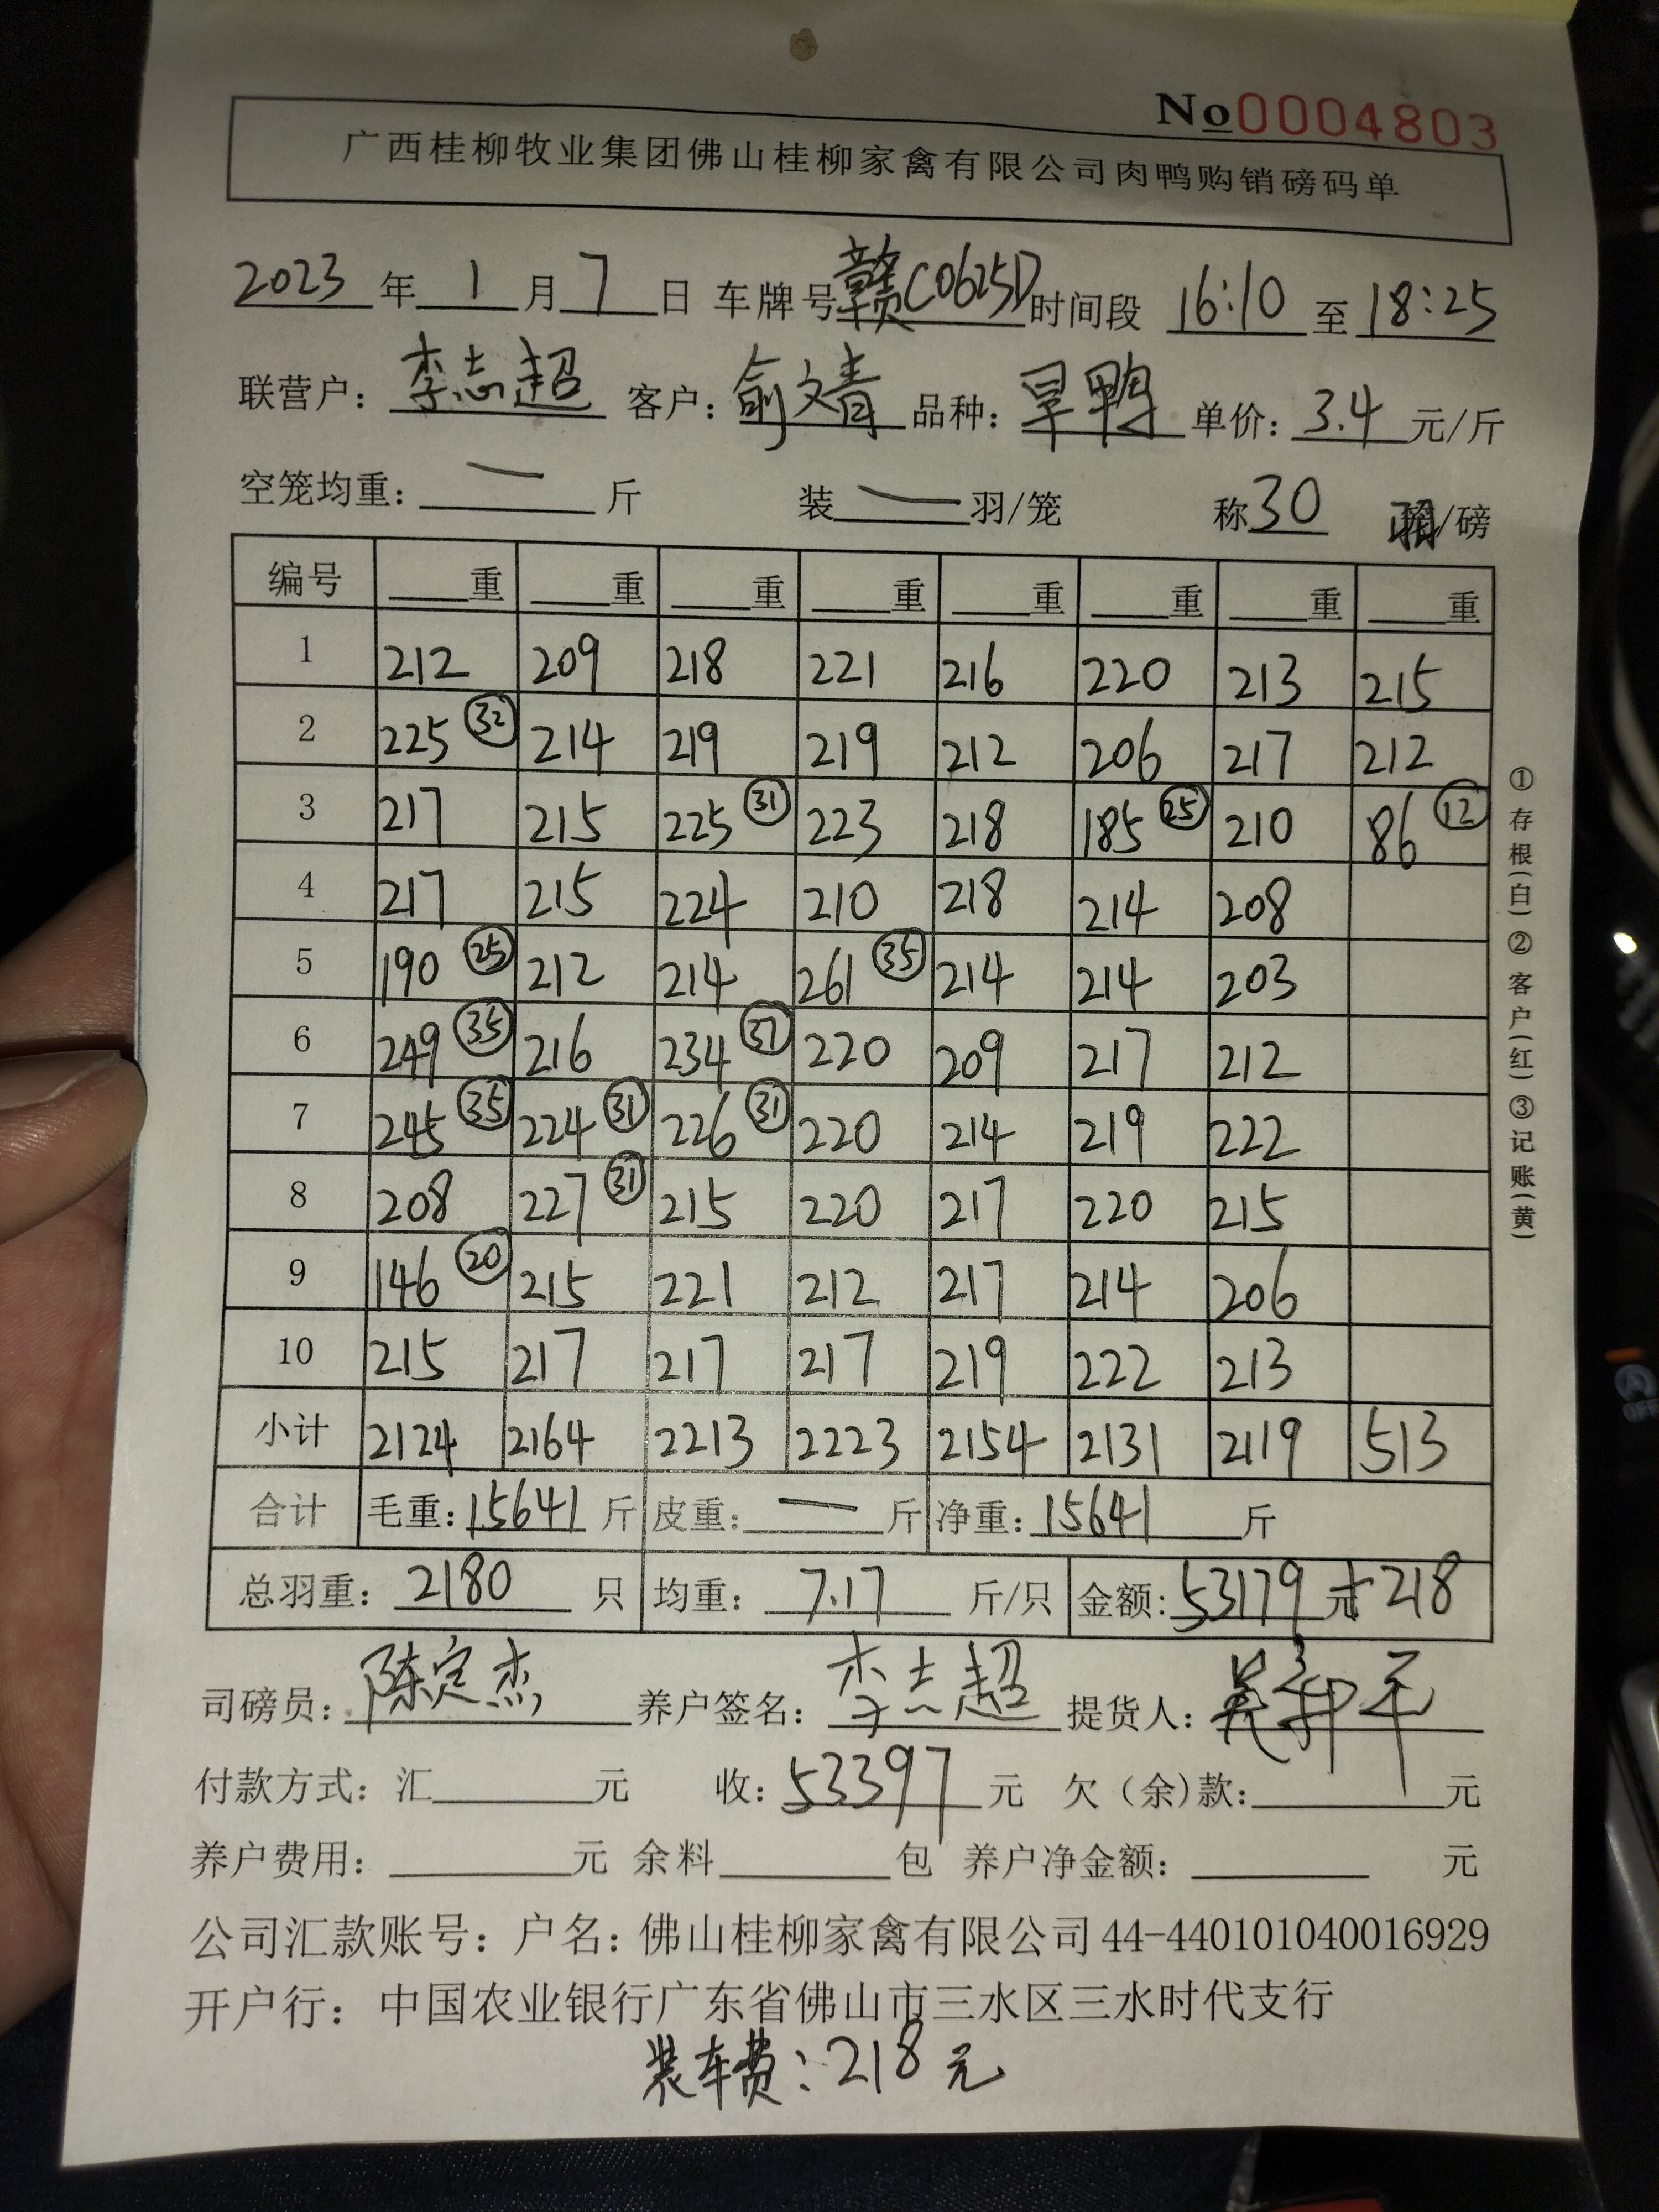 No 0004803
广西桂柳牧业集团佛山桂柳家禽有限公司肉鸭购销磅码单
2023 年 1 月 7 日 车牌号 赣C0625D 时间段 16:10 至 18:25
联营户: 李志超 客户: 俞文青 品种: 旱鸭 单价: 3.4 元/斤
空笼均重: 一 斤 装 一 羽/笼 称 30 羽/磅
编号 重 重 重 重 重 重 重 重
1 212 209 218 221 216 220 213 215
2 225 ㉜ 214 219 219 212 206 217 212
3 217 215 225 ㉛ 223 218 185 ㉕ 210 86 ⑫
4 217 215 224 210 218 214 208
5 190 ㉕ 212 214 261 ㉟ 214 214 203
6 249 ㉟ 216 234 220 209 217 212
7 245 ㉟ 224 ㉛ 226 ㉛ 220 214 219 222
8 208 227 ㉛ 215 220 217 220 215
9 146 ⑳ 215 221 212 217 214 206
10 215 217 217 217 219 222 213
小计 2124 2164 2213 2223 2154 2131 2119 513
合计 毛重: 15641 斤 皮重: 一 斤 净重: 15641 斤
总羽重: 2180 只 均重: 7.17 斤/只 金额: 53179 元+218
司磅员: 陈定杰 养户签名: 李志超 提货人:
付款方式: 汇 元 收: 53397 元 欠(余)款: 元
养户费用: 元 余料 包 养户净金额: 元
公司汇款账号: 户名: 佛山桂柳家禽有限公司 44-440101040016929
开户行: 中国农业银行广东省佛山市三水区三水时代支行
装车费: 218 元
①存根(白)②客户(红)③记账(黄)